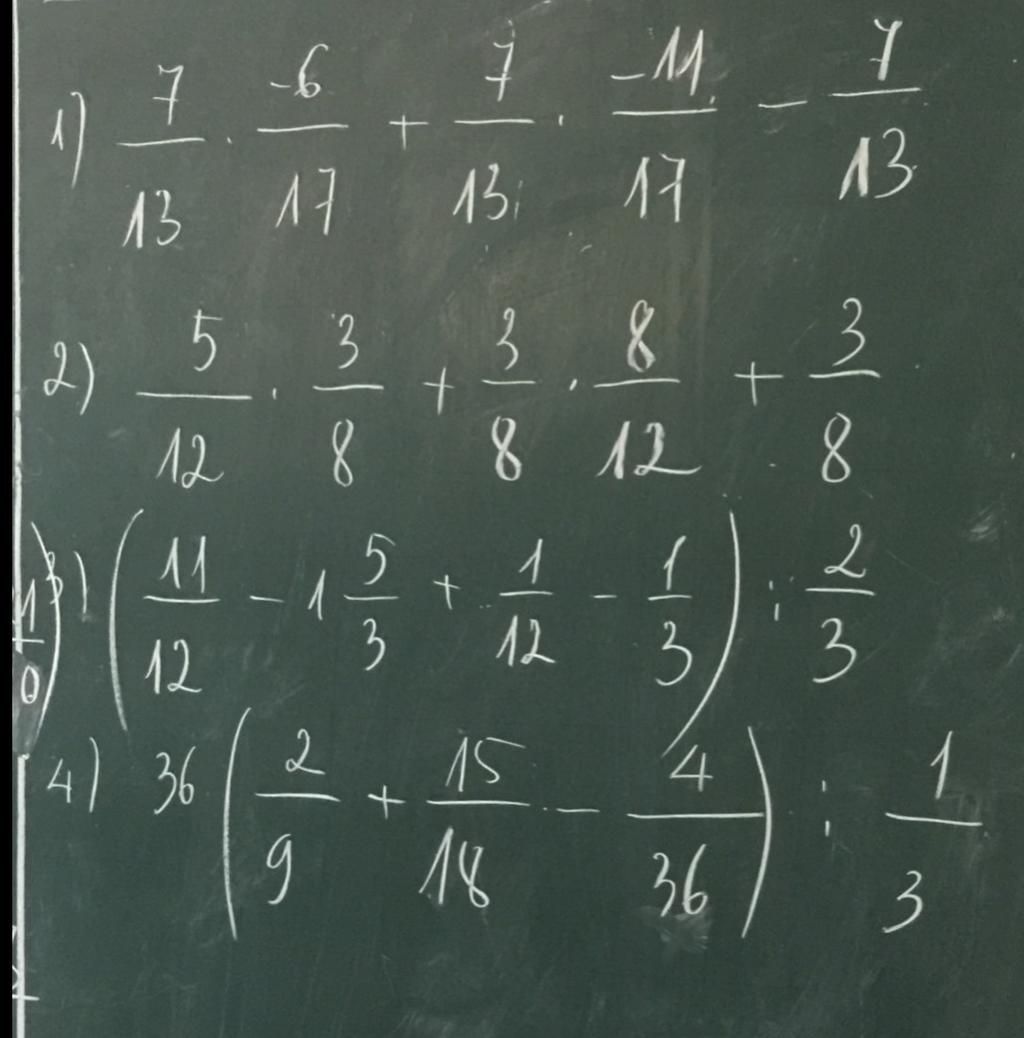 1) 7/13 · -6/17 + 7/13 · -11/17 - 7/13
2) 5/12 · 3/8 + 3/8 · 8/12 + 3/8
3) (11/12 - 1 5/3 + 1/12 - 1/3) : 2/3
4) 36 (2/9 + 15/18 - 4/36) : 1/3